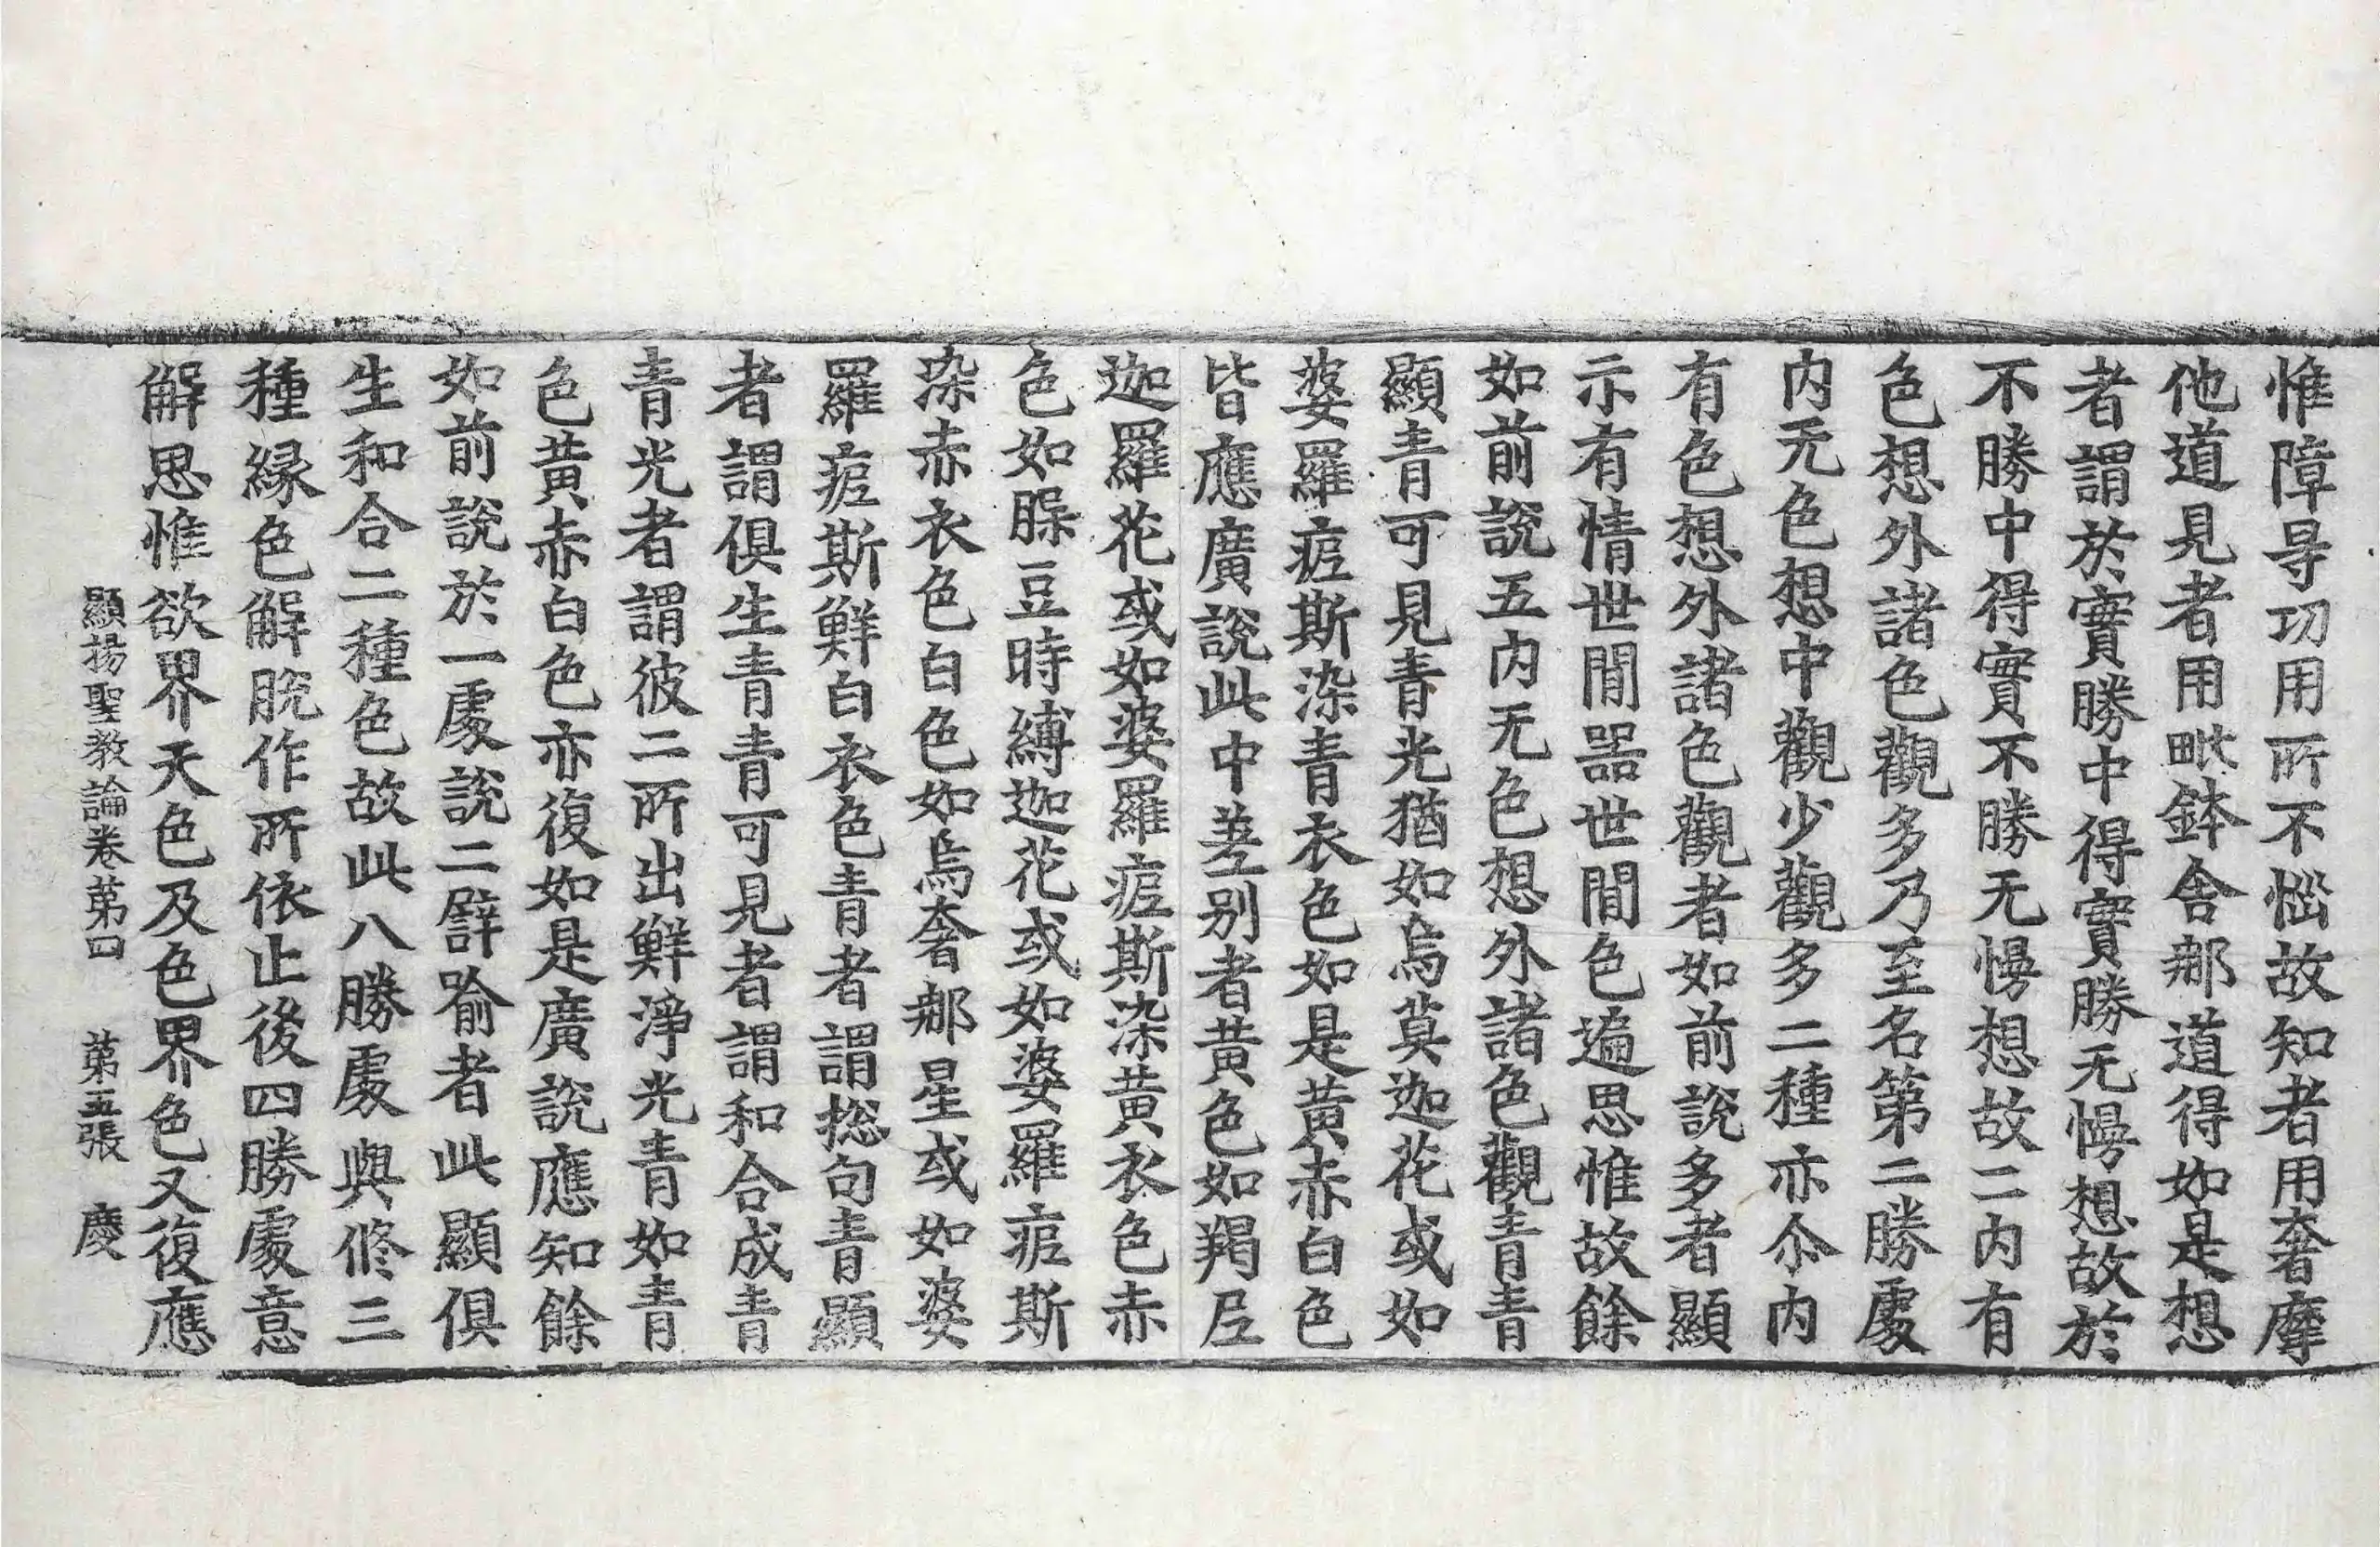 惟障㝵功用所不惱故知者用奢摩
他道見者用毗鉢舍那道得如是想
者謂於實勝中得實勝无慢想故於
不勝中得實不勝无慢想故二内有
色想外諸色觀多乃至名第二勝處
内无色想中觀少觀多二種亦尒内
有色想外諸色觀者如前說多者顯
示有情世間器世間色遍思惟故餘
如前說五内无色想外諸色觀青青
顯青可見青光猶如烏莫迦花或如
婆羅痆斯染青衣色如是黃赤白色
皆應廣說此中差別者黃色如羯尼
迦羅花或如婆羅痆斯染黃衣色赤
色如脲豆時縛迦花或如婆羅痆斯
染赤衣色白色如烏奢那星或如婆
羅痆斯鮮白衣色青者謂捴句青顯
者謂俱生青青可見者謂和合成青
青光者謂彼二所出鮮淨光青如青
色黃赤白色亦復如是廣說應知餘
如前說於一處說二譬喻者此顯俱
生和合二種色故此八勝處與修三
種緣色解脫作所依止後四勝處意
解思惟欲界天色及色界色又復應
顯揚聖教論卷第四 第五張 慶